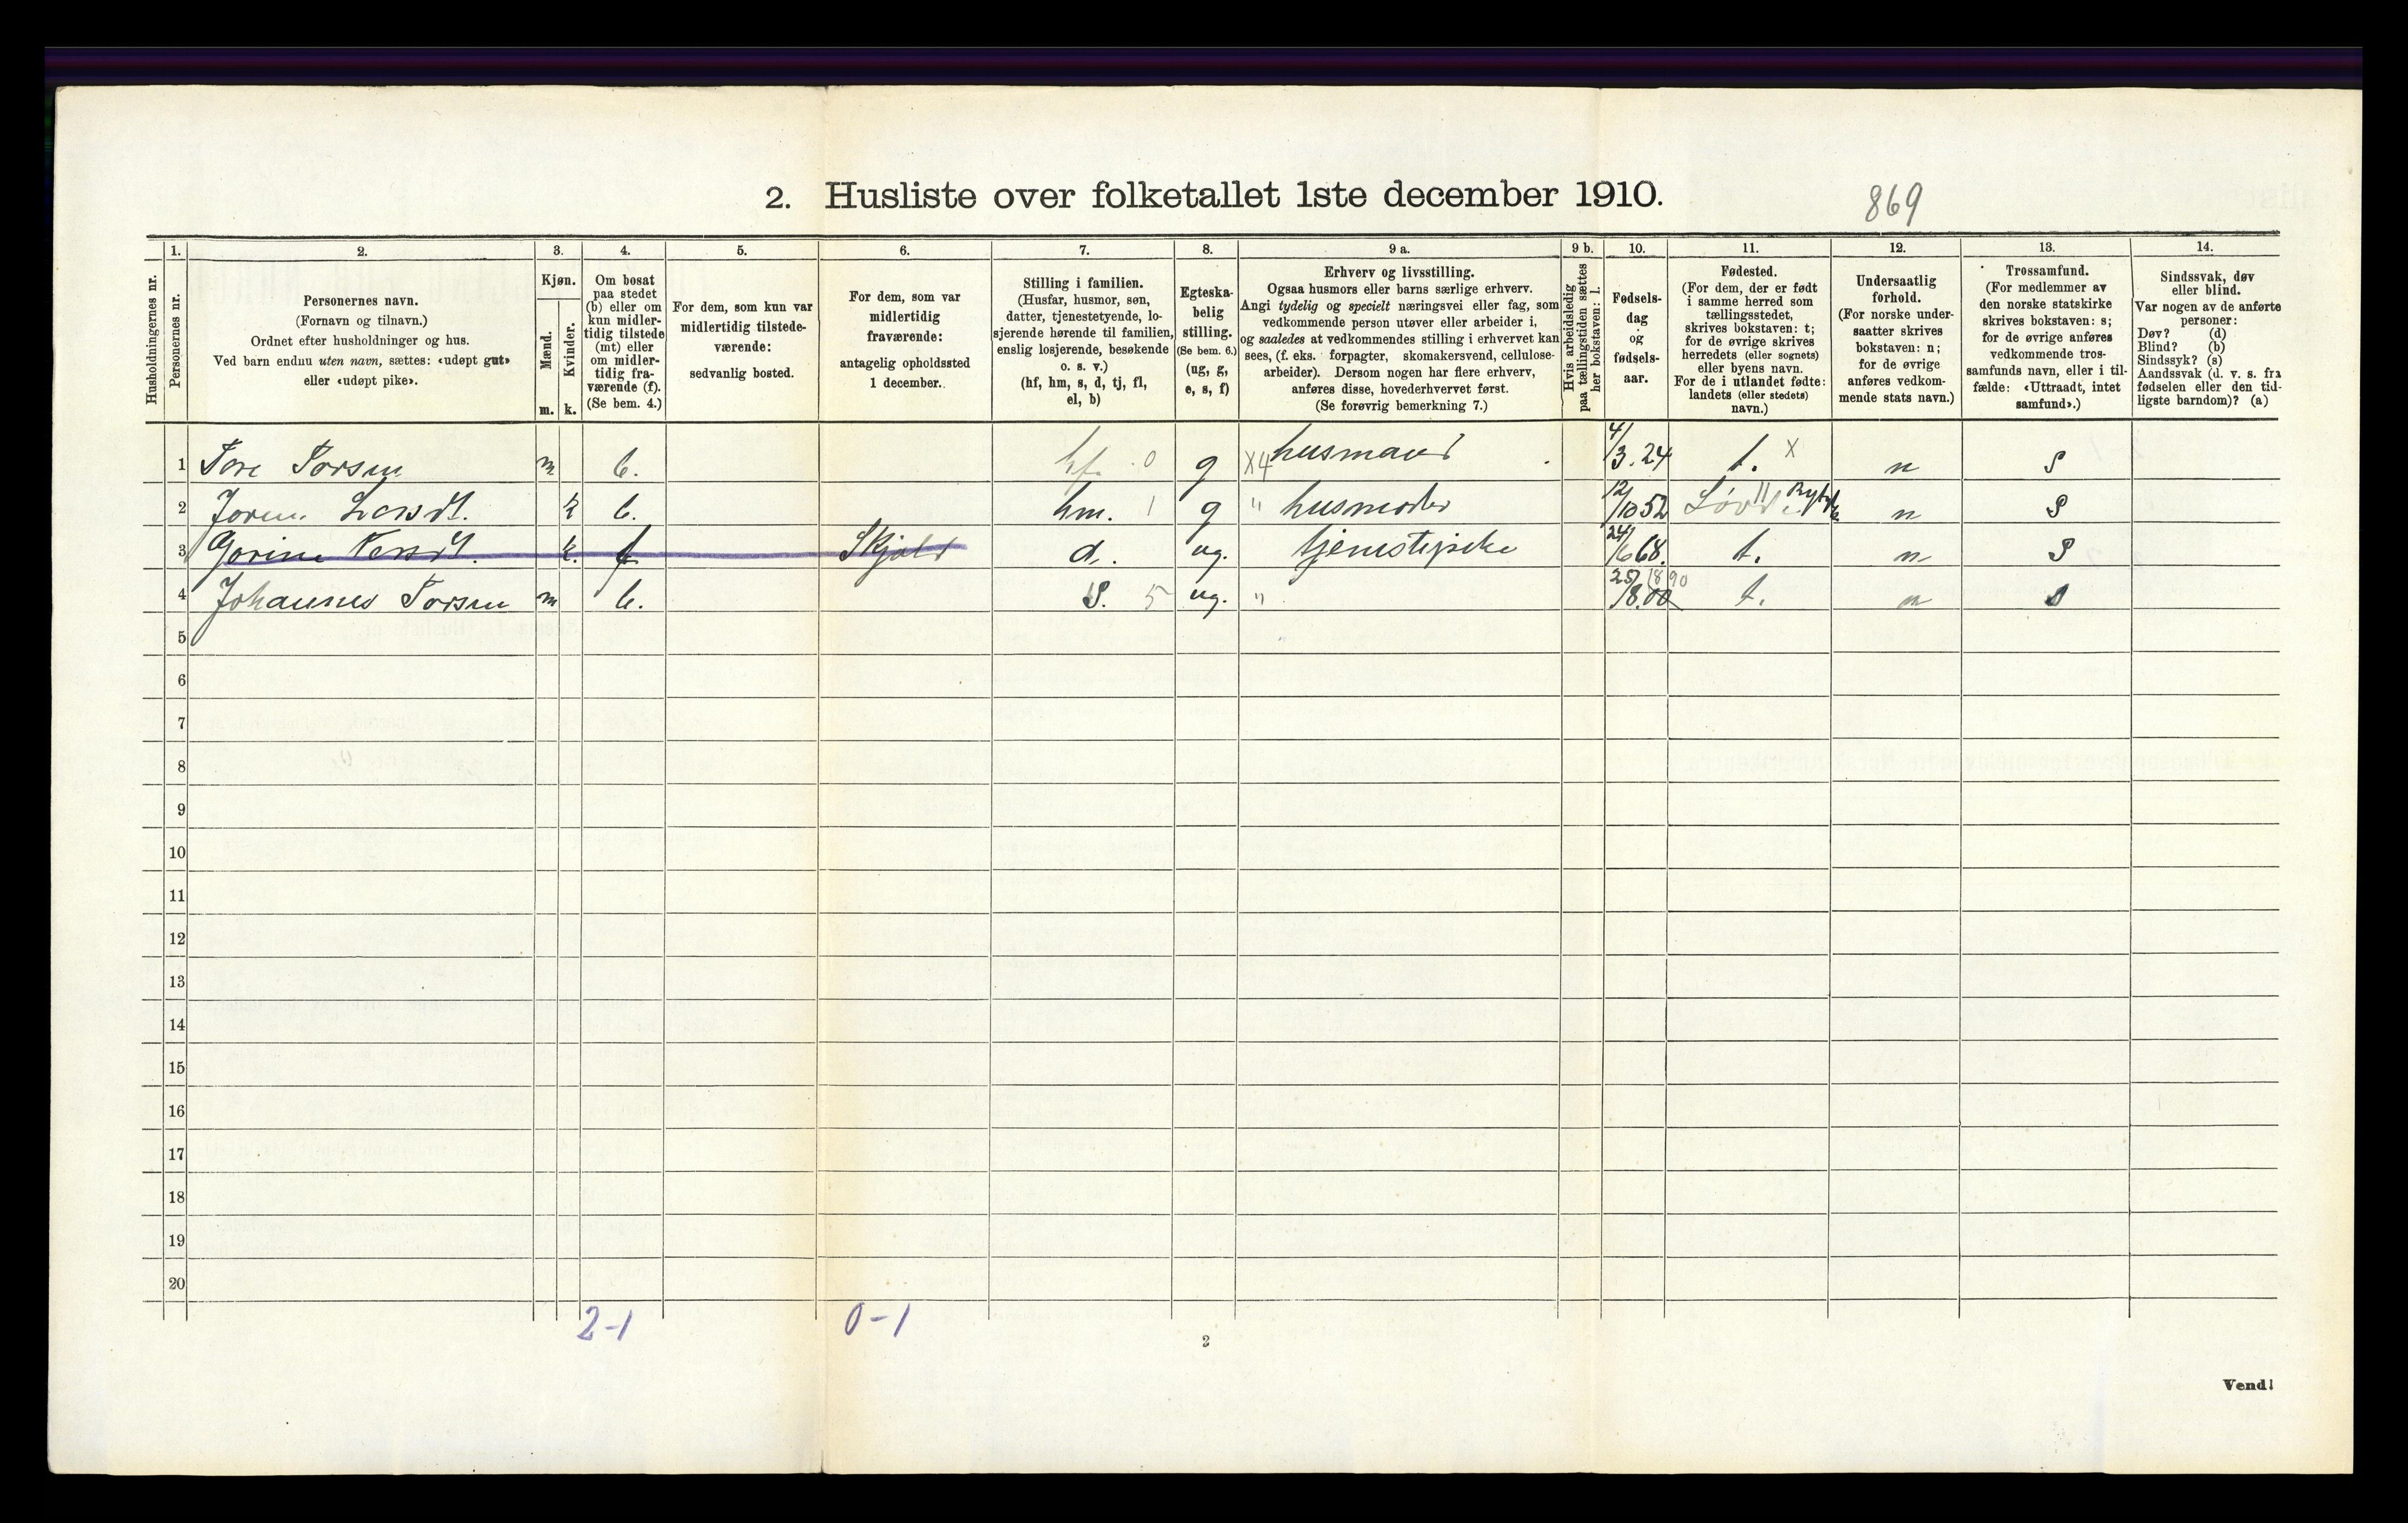 2. Husliste over folketallet 1ste december 1910.
869
Husholdningernes nr.
1.
Personernes nr.
2.
Personernes navn.
(Fornavn og tilnavn.)
Ordnet efter husholdninger og hus.
Ved barn endnu uten navn, sættes: «udøpt gut»
eller «udøpt pike».
3.
Kjøn.
Mænd.
Kvinder.
m. k.
4.
Om bosat
paa stedet
(b) eller om
kun midler-
tidig tilstede
(mt) eller
om midler-
tidig fra-
værende (f).
(Se bem. 4.)
5.
For dem, som kun var
midlertidig tilstede-
værende:
sedvanlig bosted.
6.
For dem, som var
midlertidig
fraværende:
antagelig opholdssted
1 december.
7.
Stilling i familien.
(Husfar, husmor, søn,
datter, tjenestetyende, lo-
sjerende hørende til familien,
enslig losjerende, besøkende
o. s. v.)
(hf, hm, s, d, tj, fl,
el, b)
8.
Egteska-
belig
stilling.
(Se bem. 6.)
(ug, g,
e, s, f)
9 a.
Erhverv og livsstilling.
Ogsaa husmors eller barns særlige erhverv.
Angi tydelig og specielt næringsvei eller fag, som
vedkommende person utøver eller arbeider i,
og saaledes at vedkommendes stilling i erhvervet kan
sees, (f. eks. forpagter, skomakersvend, cellulose-
arbeider). Dersom nogen har flere erhverv,
anføres disse, hovederhvervet først.
(Se forøvrig bemerkning 7.)
9 b.
Hvis arbeidsledig
paa tællingstiden sættes
her bokstaven: l.
10.
Fødsels-
dag
og
fødsels-
aar.
11.
Fødested.
(For dem, der er født
i samme herred som
tællingsstedet,
skrives bokstaven: t;
for de øvrige skrives
herredets (eller sognets)
eller byens navn.
For de i utlandet fødte:
landets (eller stedets)
navn.)
12.
Undersaatlig
forhold.
(For norske under-
saatter skrives
bokstaven: n;
for de øvrige
anføres vedkom-
mende stats navn.)
13.
Trossamfund.
(For medlemmer av
den norske statskirke
skrives bokstaven: s;
for de øvrige anføres
vedkommende tros-
samfunds navn, eller i til-
fælde: «Uttraadt, intet
samfund».)
14.
Sindssvak, døv
eller blind.
Var nogen av de anførte
personer:
Døv? (d)
Blind? (b)
Sindssyk? (s)
Aandssvak (d. v. s. fra
fødselen eller den tid-
ligste barndom)? (a)
1 Tore Torsen m b. hf. 0 g X4 husmand 4/3.24 t. X n S
2 k b. hm. 1 g " husmoder 12/10 52 n S
3 k. f Skjold d. ug. tjenestepike 24/6 68. t. n S
4 Johannes Torsen m b. S. 5 ug. " 25/8.00 1890 t. n S
5
6
7
8
9
10
11
12
13
14
15
16
17
18
19
20
2-1 0-1
2
Vend!